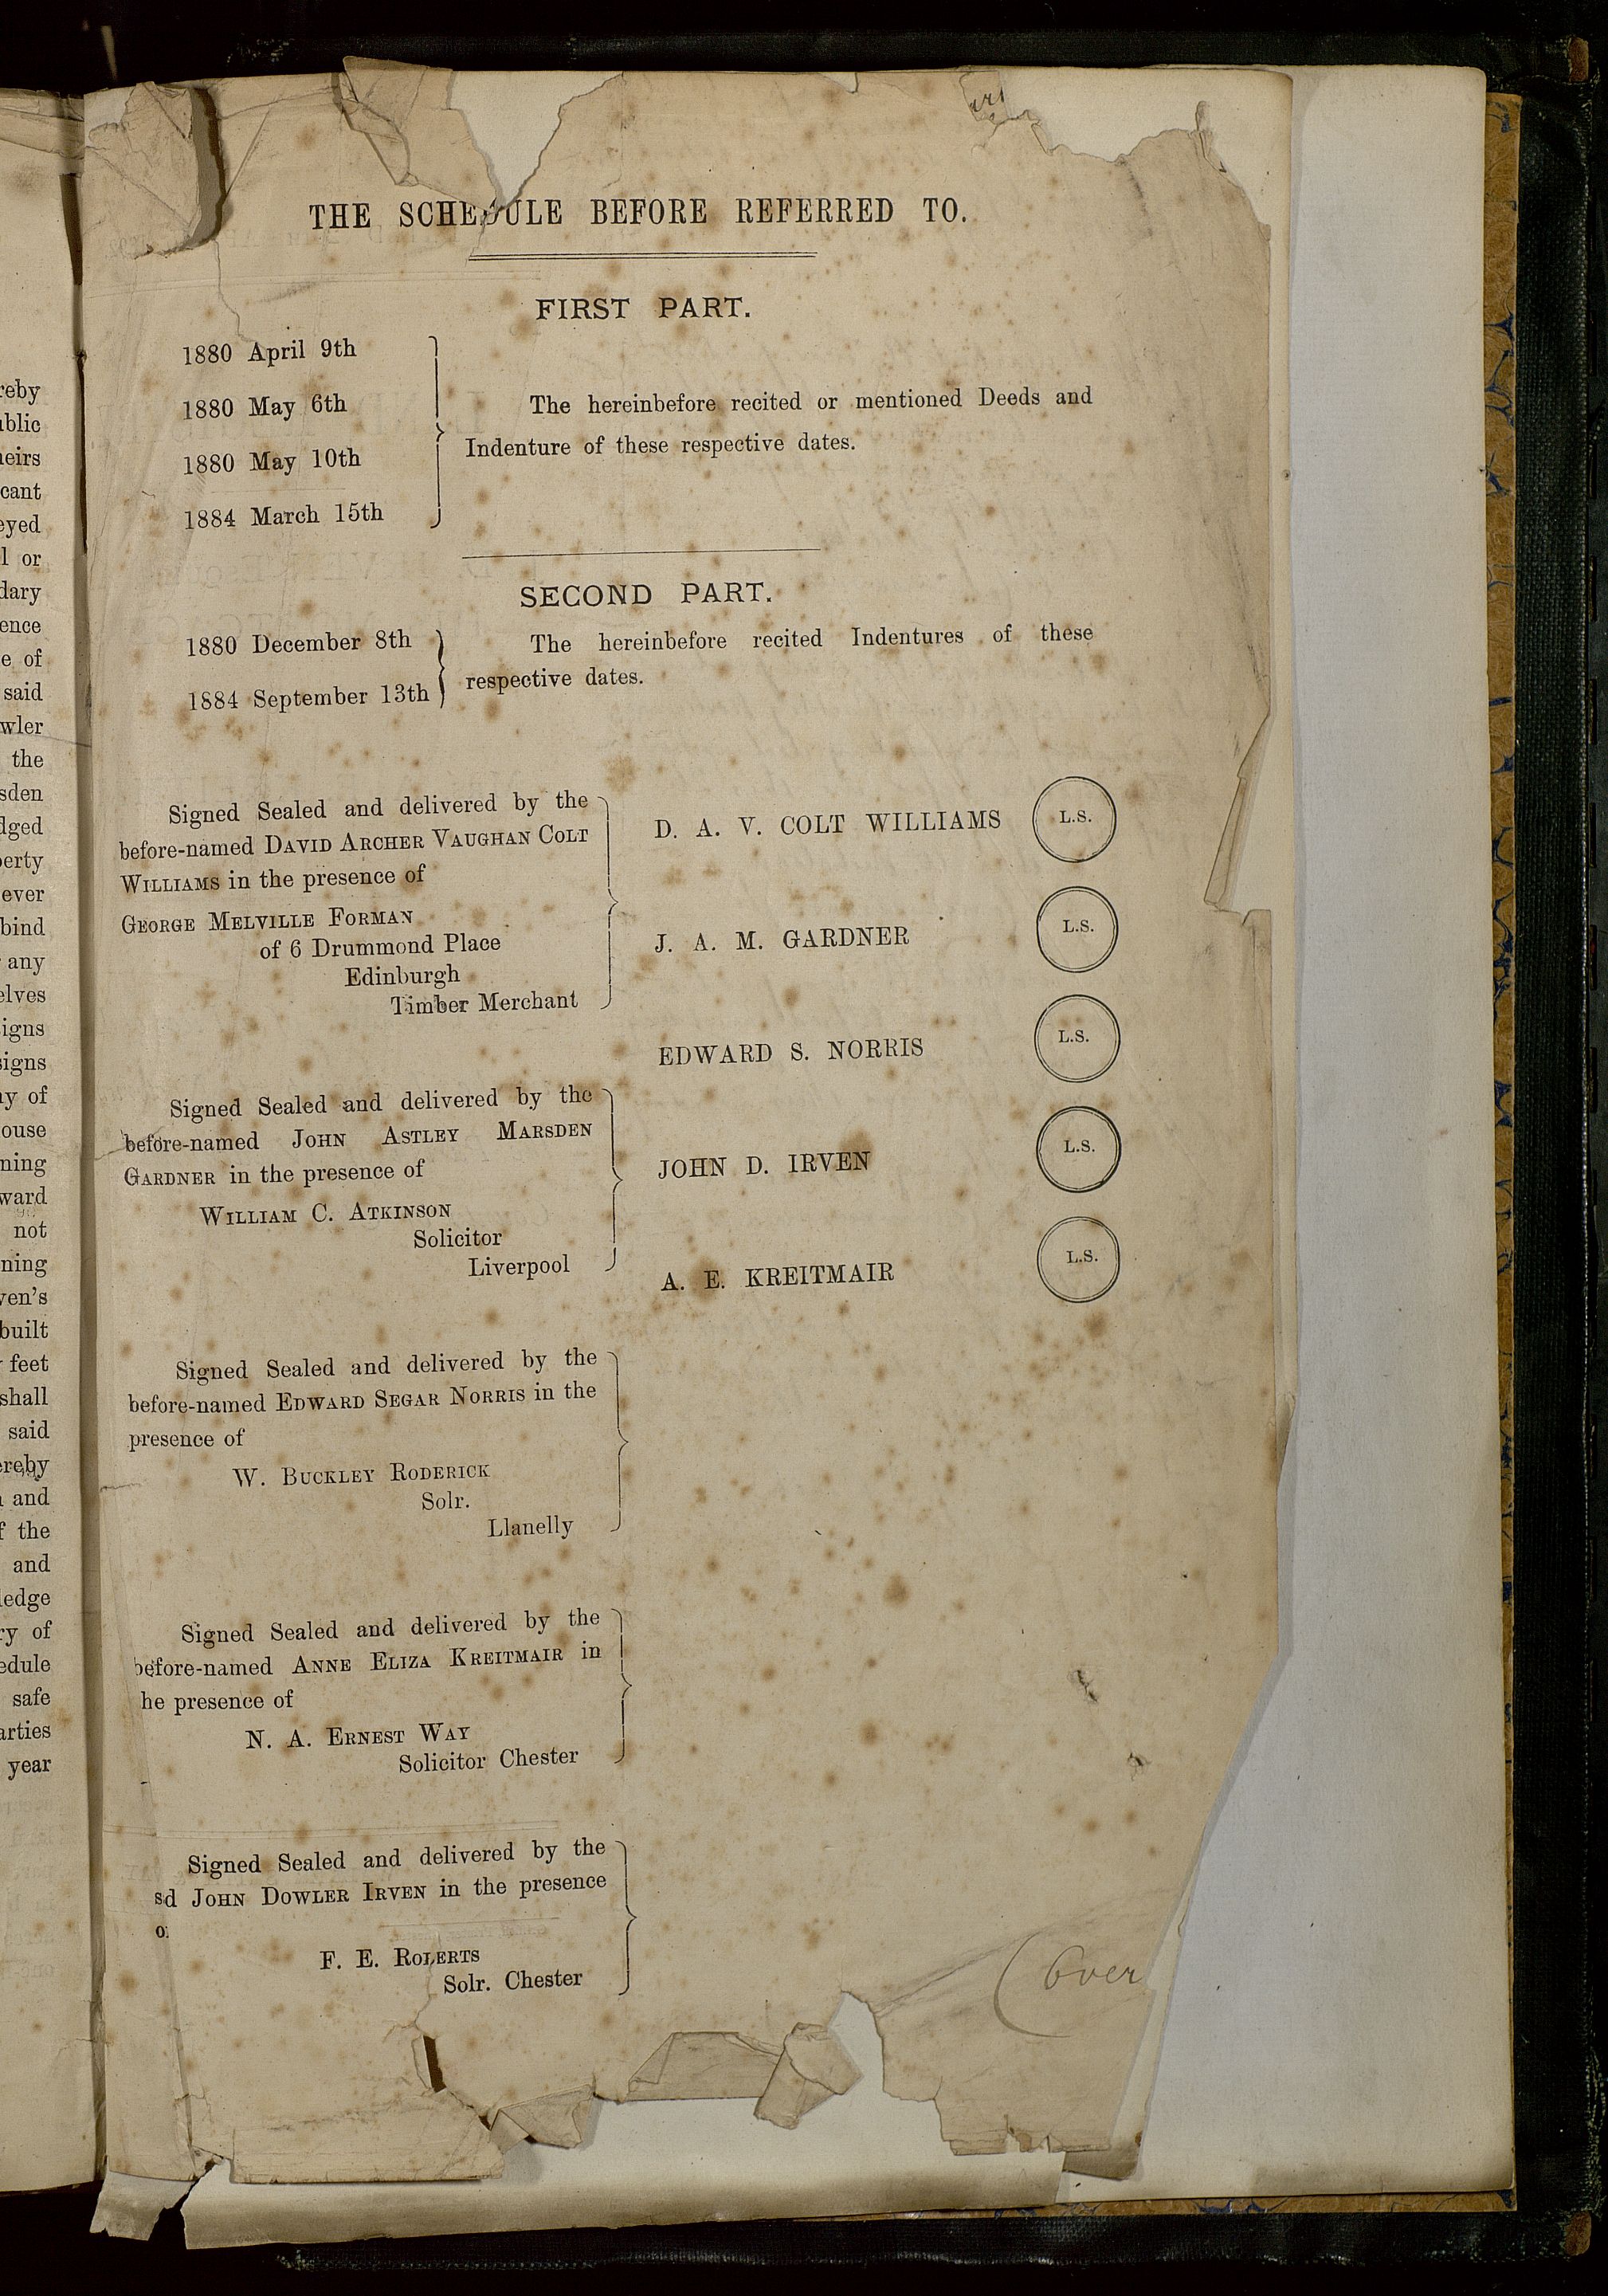 THE SCHEDULE BEFORE REFERRED TO.
FIRST PART.
1880 April 9th
1880 May 6th
1880 May 10th
1884 March 15th
The hereinbefore recited or mentioned Deeds and
Indenture of these respective dates.
SECOND PART.
1880 December 8th
1884 September 13th
The hereinbefore recited Indentures of these
respective dates.
Signed Sealed and delivered by the
before-named DAVID ARCHER VAUGHAN COLT
WILLIAMS in the presence of
GEORGE MELVILLE FORMAN
of 6 Drummond Place
Edinburgh
Timber Merchant
Signed Sealed and delivered by the
before-named JOHN ASTLEY MARSDEN
GARDNER in the presence of
WILLIAM C. ATKINSON
Solicitor
Liverpool
Signed Sealed and delivered by the
before-named EDWARD SEGAR NORRIS in the
presence of
W. BUCKLEY RODERICK
Solr.
Llanelly
Signed Sealed and delivered by the
before-named ANNE ELIZA KREITMAIR in
he presence of
N. A. ERNEST WAY
Solicitor Chester
Signed Sealed and delivered by the
sd JOHN DOWLER IRVEN in the presence
o
F. E. ROBERTS
Solr. Chester
D. A. V. COLT WILLIAMS L.S.
J. A. M. GARDNER L.S.
EDWARD S. NORRIS L.S.
JOHN D. IRVEN L.S.
A. E. KREITMAIR L.S.
(Over
reby
ublic
heirs
cant
eyed
l or
dary
ence
e of
said
wler
the
sden
dged
perty
ever
bind
any
elves
igns
signs
ny of
ouse
ning
ward
not
ning
ven's
built
feet
shall
said
ereby
and
f the
and
ledge
ry of
edule
safe
arties
year